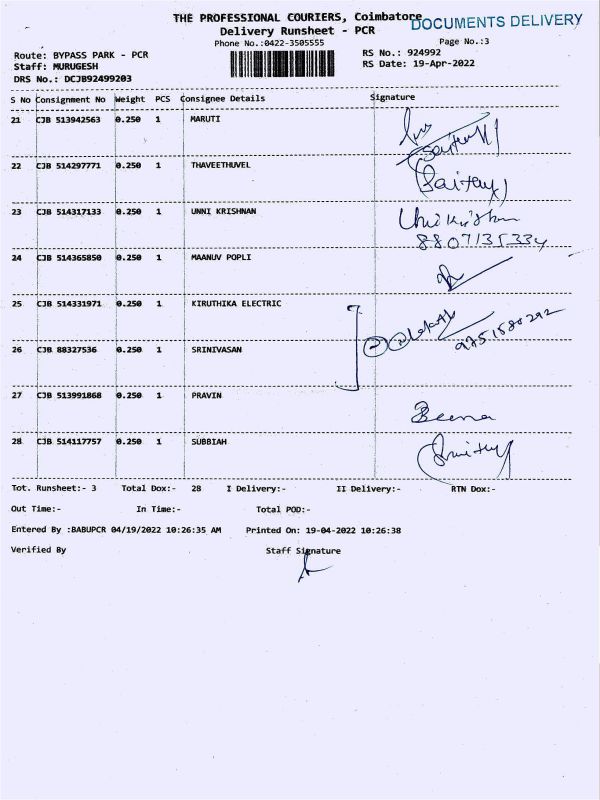 THE PROFESSIONAL COURIERS, Coimbatore
DOCUMENTS DELIVERY
Delivery Runsheet - PCR
Phone No.:0422-3505555
Page No.:3
Route: BYPASS PARK - PCR
RS No.: 924992
Staff: MURUGESH
RS Date: 19-Apr-2022
DRS No.: DCJB92499203
S No Consignment No Weight PCS Consignee Details Signature
21 CJB 513942563 0.250 1 MARUTI
22 CJB 514297771 0.250 1 THAVEETHUVEL
23 CJB 514317133 0.250 1 UNNI KRISHNAN
8807135334
24 CJB 514365850 0.250 1 MAANUV POPLI
25 CJB 514331971 0.250 1 KIRUTHIKA ELECTRIC
9751580292
26 CJB 88327536 0.250 1 SRINIVASAN
27 CJB 513991868 0.250 1 PRAVIN
Beena
28 CJB 514117757 0.250 1 SUBBIAH
Tot. Runsheet:- 3 Total Dox:- 28 I Delivery:- II Delivery:- RTN Dox:-
Out Time:- In Time:- Total POD:-
Entered By :BABUPCR 04/19/2022 10:26:35 AM Printed On: 19-04-2022 10:26:38
Verified By Staff Signature